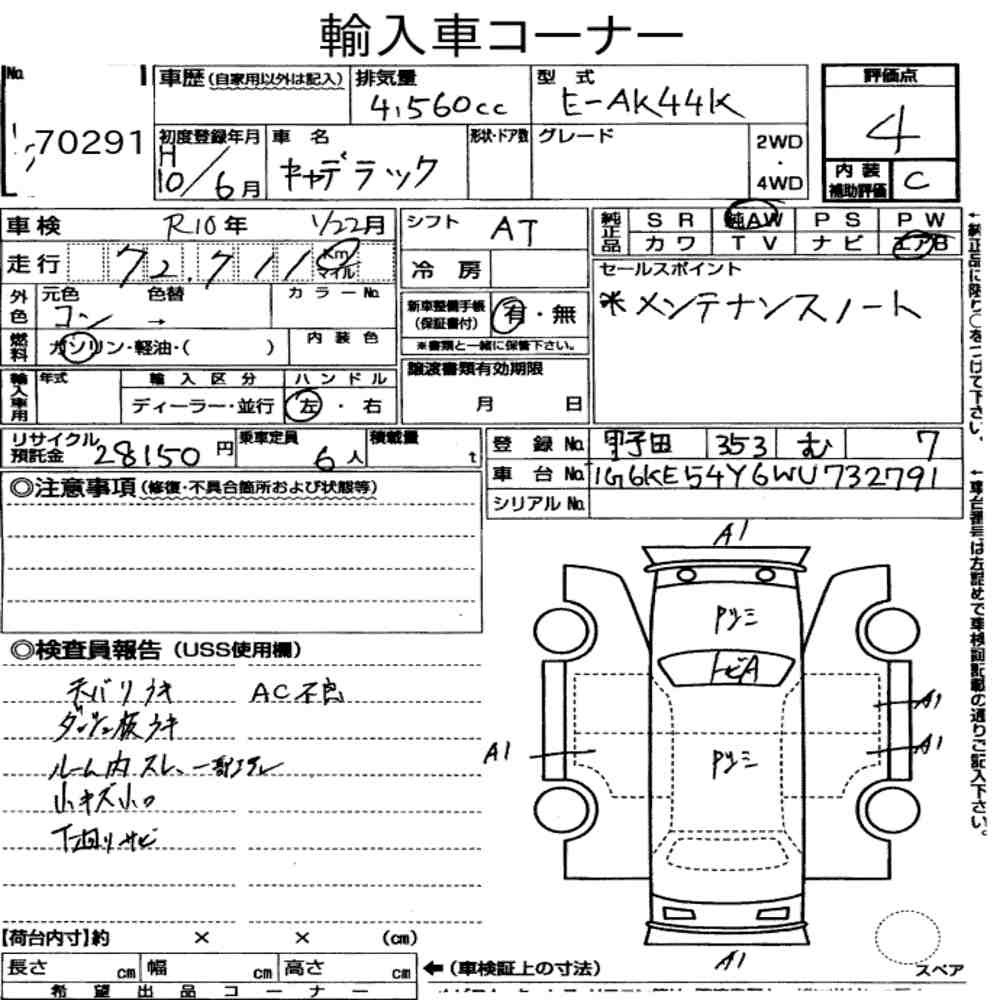 輸入車コーナー
No.
70291
車歴(自家用以外は記入) 排気量 型式 評価点
4,560cc E-AK44K 4
初度登録年月 車名 形状・ドア数 グレード 2WD・4WD
H10/6月 キャデラック
内装補助評価 C
車検 R10年 1/22月 シフト AT
純正品 SR 純AW PS PW
カワ TV ナビ エアB
走行 72,711 Km マイル 冷房
セールスポイント
※メンテナンスノート
外色 元色 色替 カラーNo.
コン →
新車整備手帳(保証書付) 有・無
※書類と一緒に保管下さい。
燃料 ガソリン・軽油・( ) 内装色
輸入車用 年式 輸入区分 ハンドル
ディーラー・並行 左・右
譲渡書類有効期限
月 日
リサイクル預託金 28150円 乗車定員 6人 積載量 t
登録No. 野田 353 む 7
車台No. 1G6KE54Y6WU732791
シリアルNo.
◎注意事項(修復・不具合箇所および状態等)
◎検査員報告(USS使用欄)
天バリウキ AC不良
ダッシュ板ウキ
ルーム内スレ、一部コゲ
小キズ小凹
下回りサビ
A1
Pツミ
トビA
A1
A1
A1
Pツミ
A1
スペア
【荷台内寸】約 × × (cm)
長さ cm 幅 cm 高さ cm ←(車検証上の寸法)
希望出品コーナー
←車台番号は左詰めで車検証記載の通りご記入下さい。